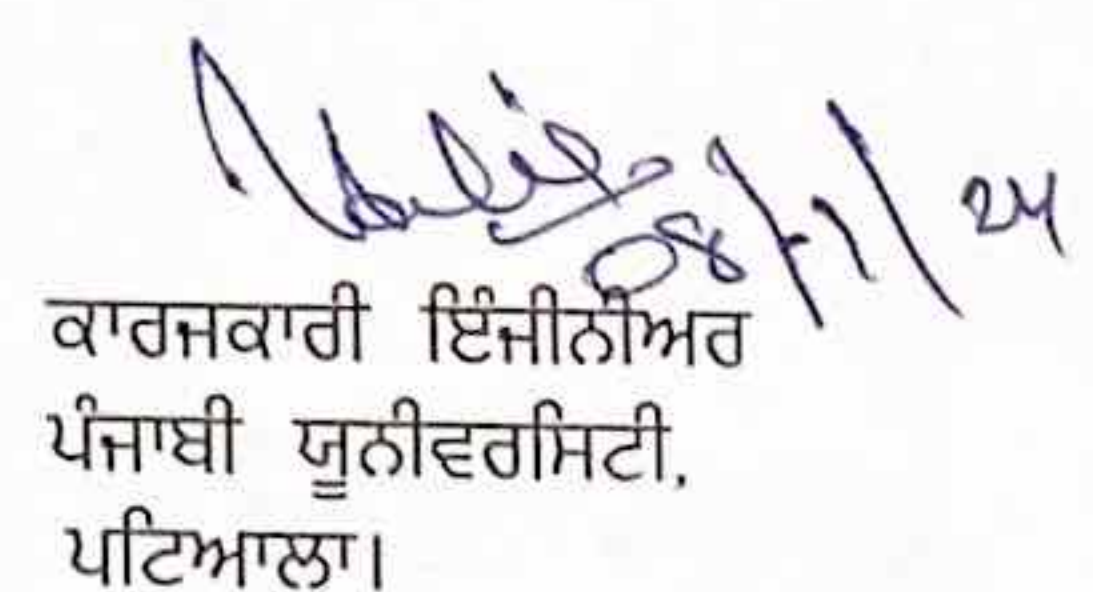 08/11/24
ਕਾਰਜਕਾਰੀ ਇੰਜੀਨੀਅਰ
ਪੰਜਾਬੀ ਯੂਨੀਵਰਸਿਟੀ,
ਪਟਿਆਲਾ।